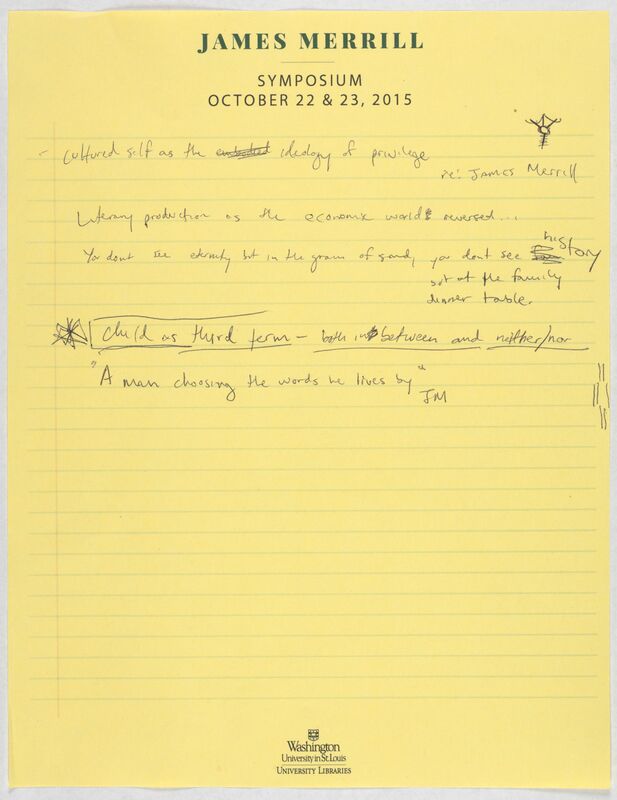 JAMES MERRILL
SYMPOSIUM
OCTOBER 22 & 23, 2015
- Cultured self as the embodied ideology of privilege
re: James Merrill
Literary production as the economic world reversed...
You dont see eternity but in the grain of sand, you dont see history
but at the family
dinner table.
Child as third term - both in between and neither/nor
"A man choosing the words he lives by"
JM
Washington
University in St. Louis
UNIVERSITY LIBRARIES